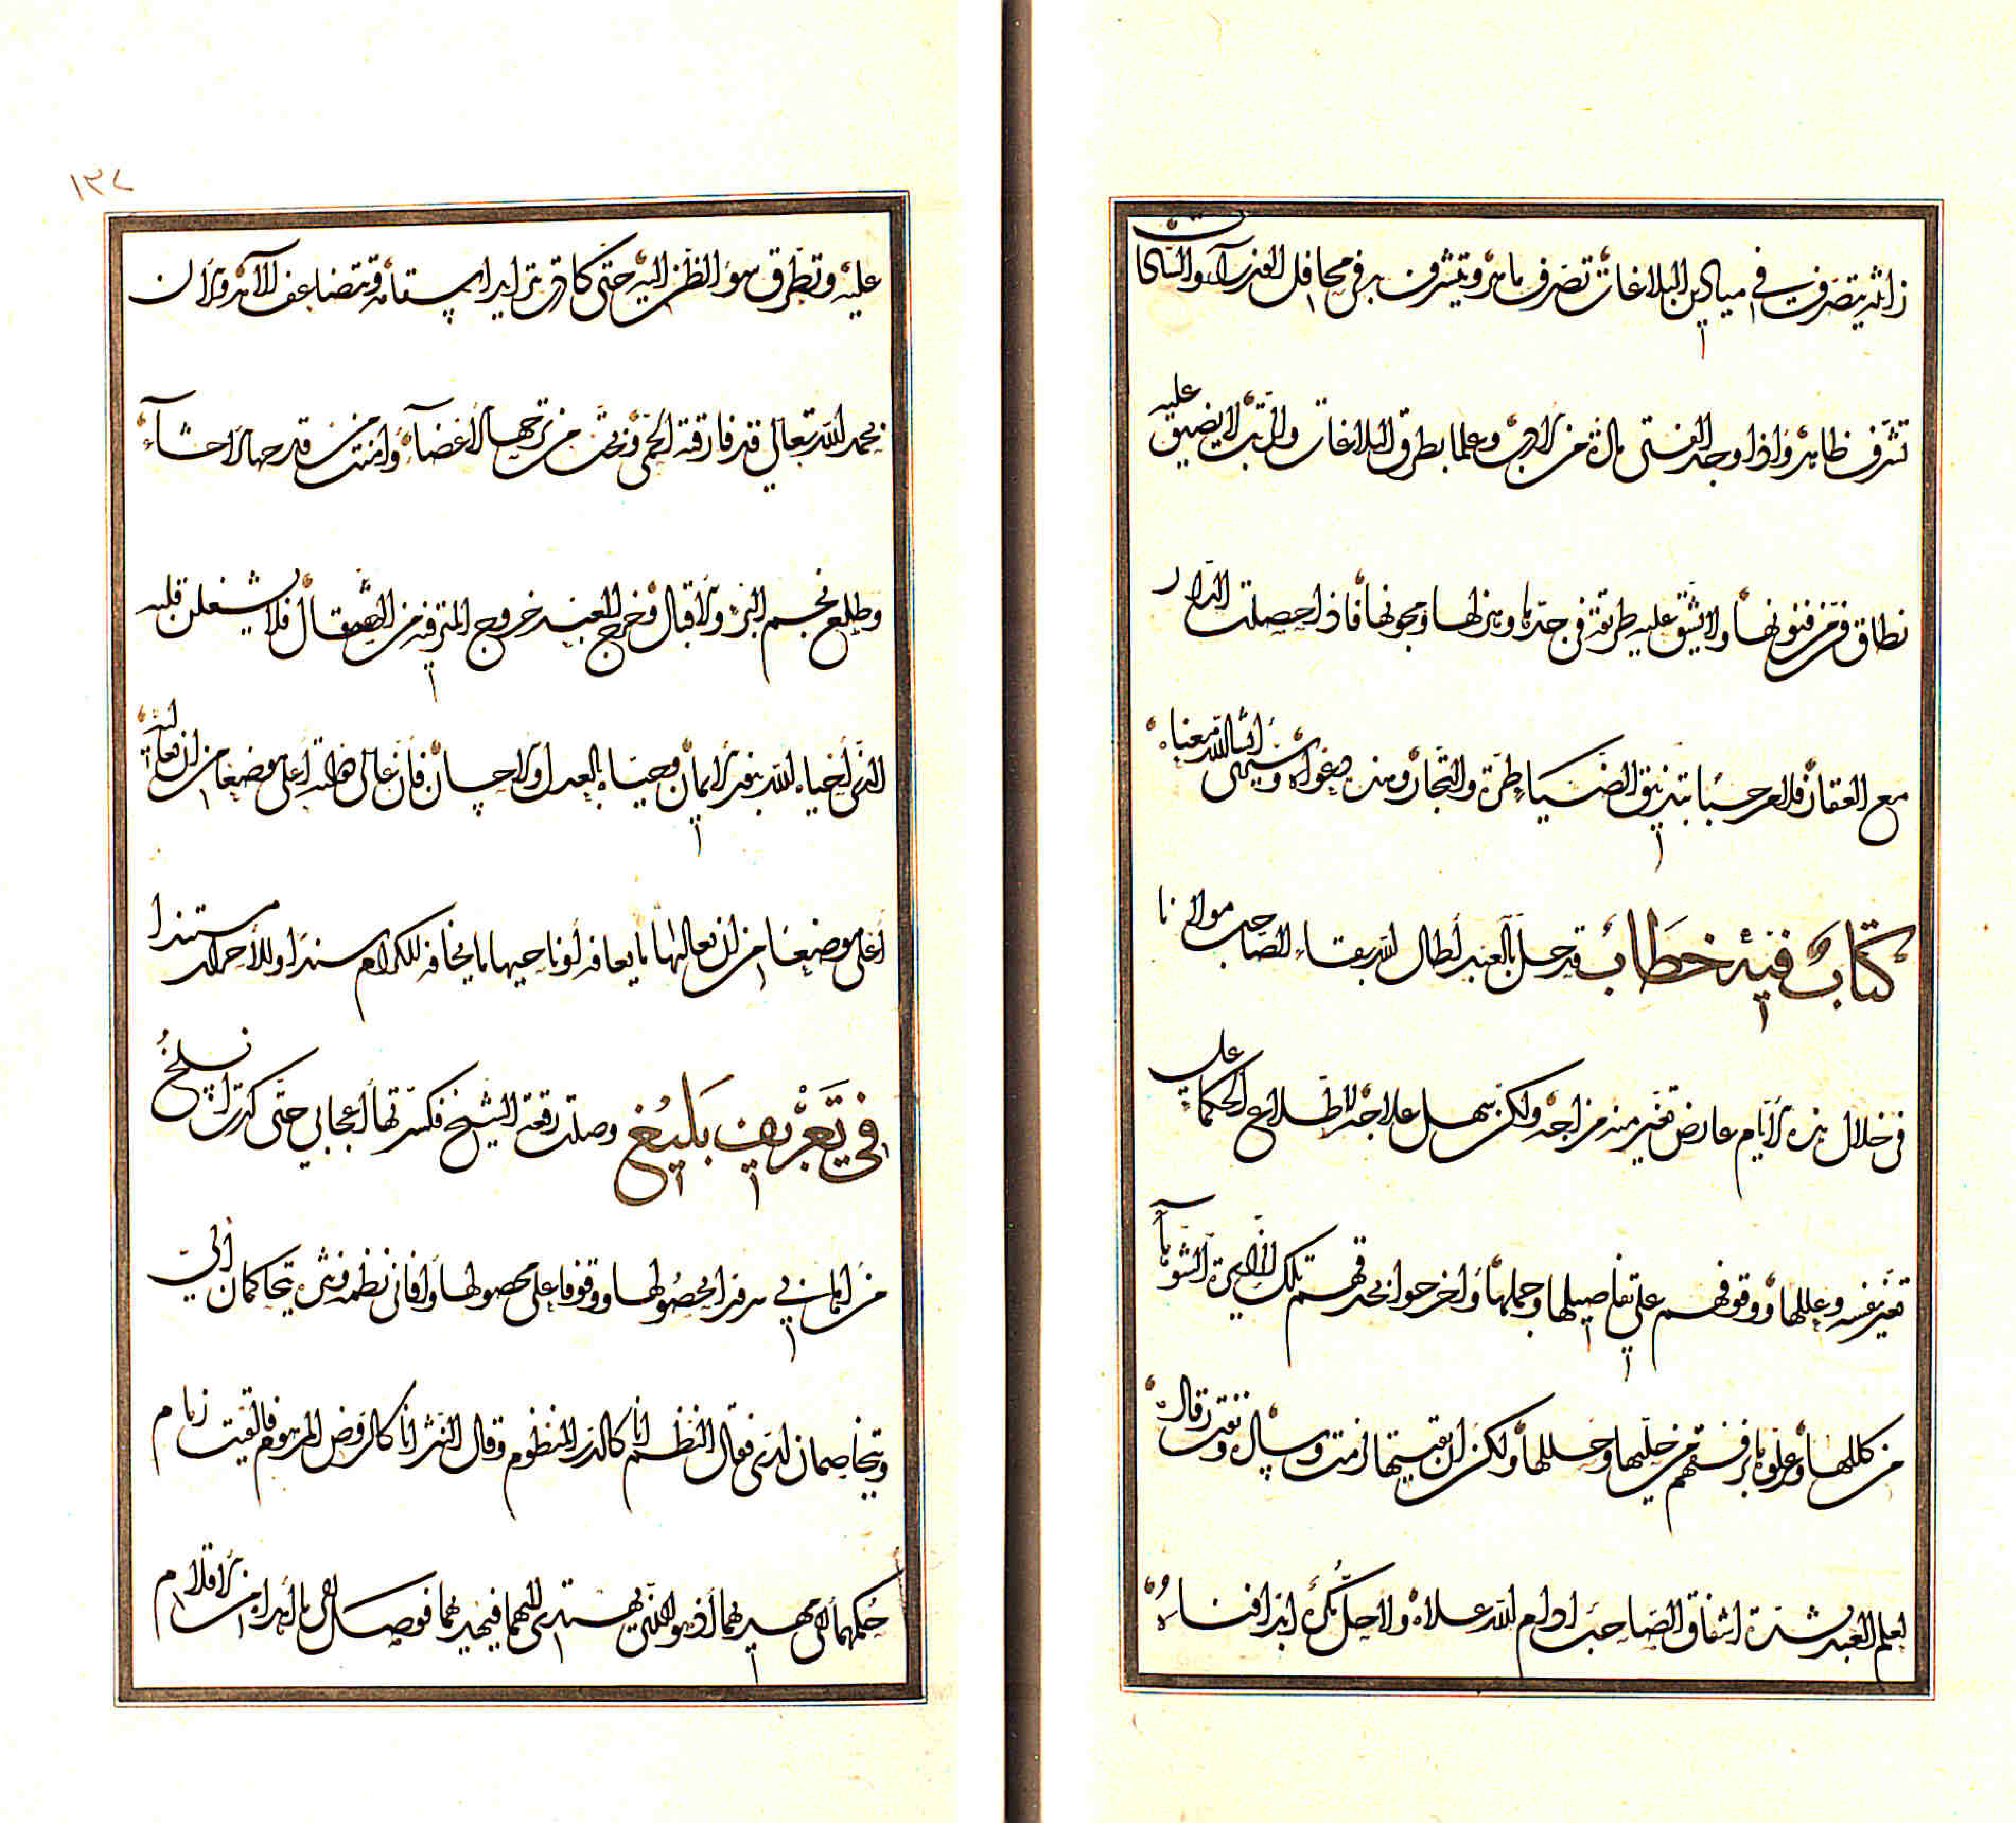 زائد يتصرف في ميادين البلاغات تصرف ماهر ويتشرف به في محافل العز بآداب والنكات
تشرف ظاهر واذا وجد الفتى مادة من الادب وعلما بطرق البلاغات والرتب لا يضيق عليه
نطاق فن من فنونها ولا تشق عليه طريقة في جدها وهزلها ومجونها فاذا حصلت الدار
مع العقار فالعز حسبا بتذنيق الضياطرة والتجار وهذه دعواه وستنهى ان شاء الله معناه
كتاب فيه خطاب قد حل بالعبد أطال الله بقاء الصاحب مولانا
في خلال هذه الايام عارض تغير منه مزاجه ولكن سهل علاجه لاطلاع الحكماء على
تغير نفسه وعللها ووقوفهم على تفاصيلها وجملها وأخرجوا بحذقهم تلك
من كللها وعزلوها برفقهم من حليها وحللها ولكن ان بقيتها لزمت وسال
لعلم العبد بشدة اشفاق الصاحب ادام الله علاه ولا احل بمكره ابدا فناءه
١٣٧
عليه وتطرق سوء الظن اليه حتى كادت تزايد اسقامه وتتضاعف آلامه والآن
بحمد الله تعالى قد فارقته الحمى ونجت من ترحمها الأعضاء وأمنت من قدحها الأحشاء
وطلع نجم البرء والاقبال وخرج العبد خروج المشرفي من الصقال فلا يشغلن قلبه
الذي أحياه الله بنور الايمان وحياه بالعدل والاحسان فان عالى همته أعلى موضعا من ان تعله
أعلى موضعا من ان تعاليها ما يعافه أو ناحيها ما يخافه للكرام سندا وللأحرار مستندا
في تعريف بليغ وصلت رقعة الشيخ فكسرتها أعجابي حتى كدت انسلخ
من اهابي سرورا بحصولها ووقوفا على محصولها وافاني نظمه ونثره يتحاكمان الي
ويتخاصمان لدي فقال النظم انا كالدر المنظوم وقال النثر انا كالروض المرهوم فألقيت زمام
حكمهما الى مهديهما اذ هو الذي يهتدي اليهما فيحديهما فوصل الى ما أهداه من الاقلام